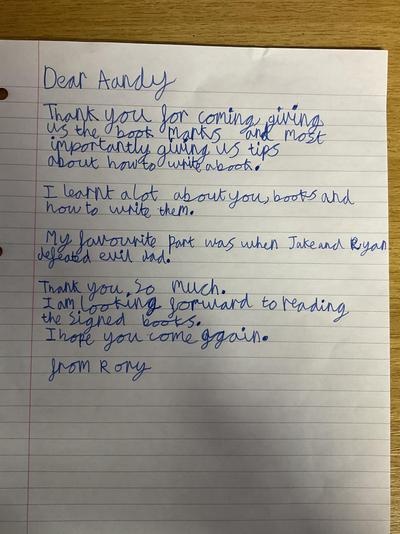 Dear Aandy
Thank you for coming, giving
us the book marks and most
importantly giving us tips
about how to write a book.
I learnt alot about you, books and
how to write them.
My favourite part was when Jake and Ryan
defeated evil dad.
Thank you, so much.
I am looking forward to reading
the signed books.
I hope you come again.
from Rory